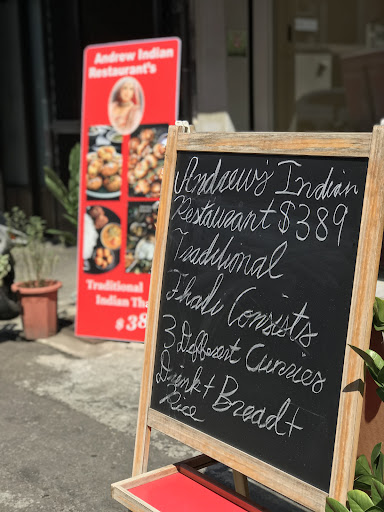 Andrew Indian
Restaurant's
Traditional
Indian Tha
$38
Andrew's Indian
Restaurant $389
Traditional
Thali Consists
3 Different Curries
Drink + Bread +
Rice